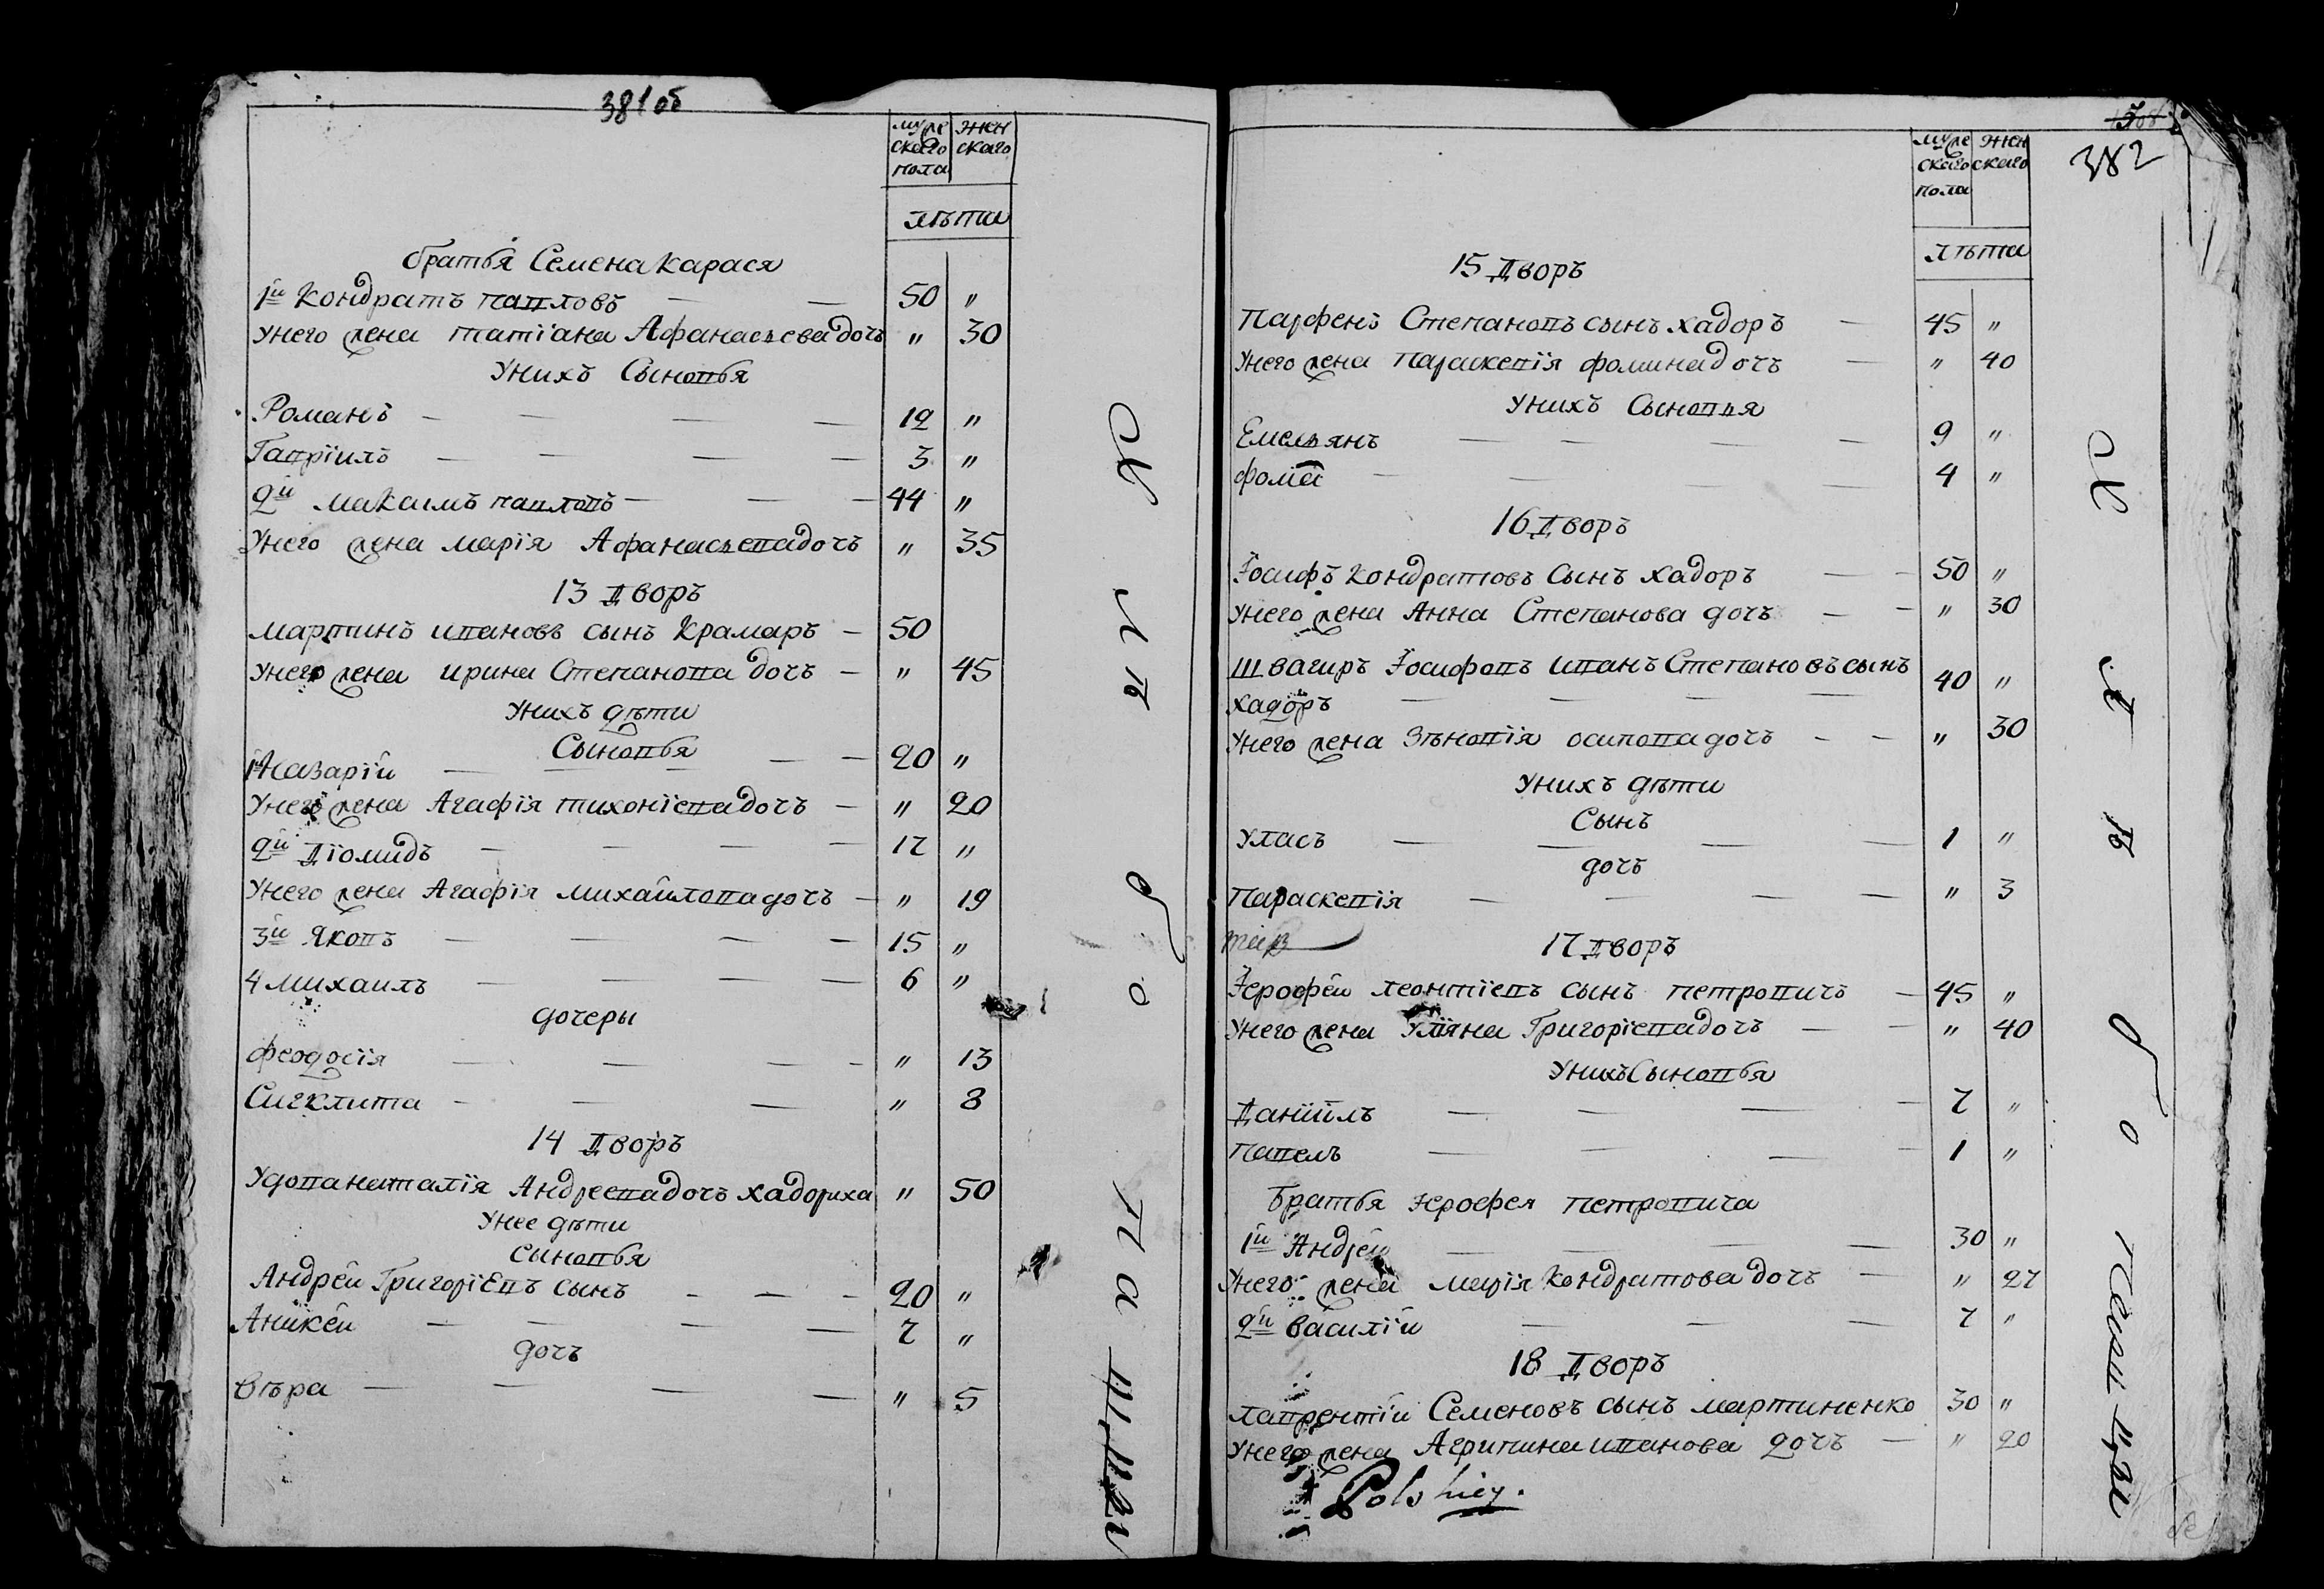 381 об
муже ского пола
жен ского
лѣта
братья Семена карася
1й Кондратъ павловъ — — 50 "
унего жена татiана Афанасьева дочь " 30
Унихъ Сыновья
Романъ — — — — 12 "
Гаврiилъ — — — — 3 "
2й максимъ павловъ — — — 44 "
Унего жена марiя Афанасьева дочь " 35
13 Дворъ
мартинъ ивановъ сынъ Крамаръ — 50
унего жена ирина Степанова дочь — " 45
Унихъ дѣти
Сыновья
1й Назарiй — — — — — 20 "
Унего жена Агафiя тихонiева дочь — " 20
2й Дiомидъ — — — — 17 "
Унего жена Агафiя михайлова дочь — " 19
3й Яковъ — — — — 15 "
4 михаилъ — — — — 6 "
дочеры
феодосiя — — — — " 13
Сигклита — — — " 8
14 Дворъ
Удова наталiя Андреева дочь хадориха " 50
Унее дѣти
сыновья
Андрей Григорiевъ сынъ — — — 20 "
Аникей — — — — 7 "
дочь
вѣра — — — — " 5
Слѣбода
382
муже ского пола
жен ского
лѣта
15 Дворъ
парфенъ Степановъ сынъ хадоръ — 45 "
унего жена параскевiя фомина дочь — " 40
Унихъ Сыновья
Емельянъ — — — — 9 "
фома — — — 4 "
16 Дворъ
Iосифъ кондратовъ Сынъ хадоръ — — 50 "
унего жена Анна Степанова дочь — — " 30
Швагиръ Iосифовъ иванъ Степановъ сынъ
хадоръ — — — — 40 "
Унего жена Зѣновiя осипова дочь — — " 30
Унихъ дѣти
Сынъ
Уласъ — — — — 1 "
дочь
параскевiя — — — — " 3
17 Дворъ
Iерофей леонтiевъ сынъ петровичъ — 45 "
унего жена Улiяна Григорiева дочь — — " 40
Унихъ Сыновья
Данiилъ — — — — 7 "
павелъ — — — — 1 "
братья Iерофея петровича
1й Андрей — — — — 30 "
Унего жена марiя кондратова дочь — " 27
2й василiй — — — 7 "
18 Дворъ
лаврентiй Семеновъ сынъ мартиненко 30 "
унего жена Агрипина иванова дочь — " 20
Слѣбо